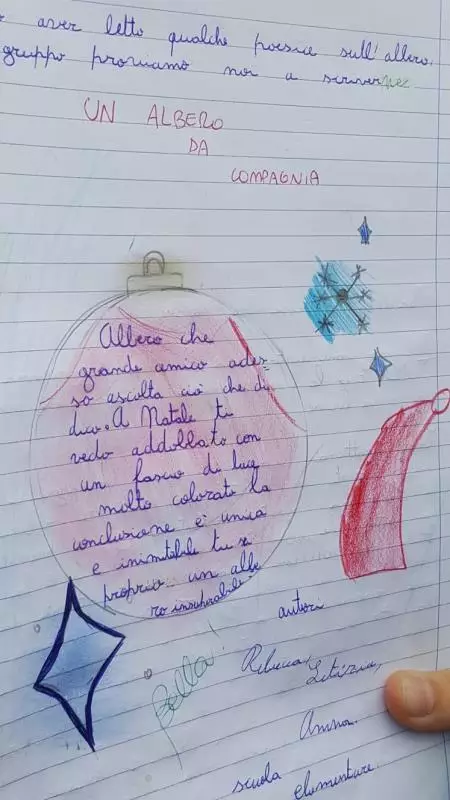 aver letto qualche poesia sull'albero,
gruppo proviamo noi a scriverne
UN ALBERO
DA
COMPAGNIA
Albero che
grande amico ades-
so ascolta ciò che di
dico. A Natale ti
vedo addobbato con
un fascio di luci
molto colorate la
conclusione è unica
e inimitabile tu se
proprio un albe
ro insuperabile.
autori
Rebecca, Letizia,
Amna.
scuola elementare.
Bella!